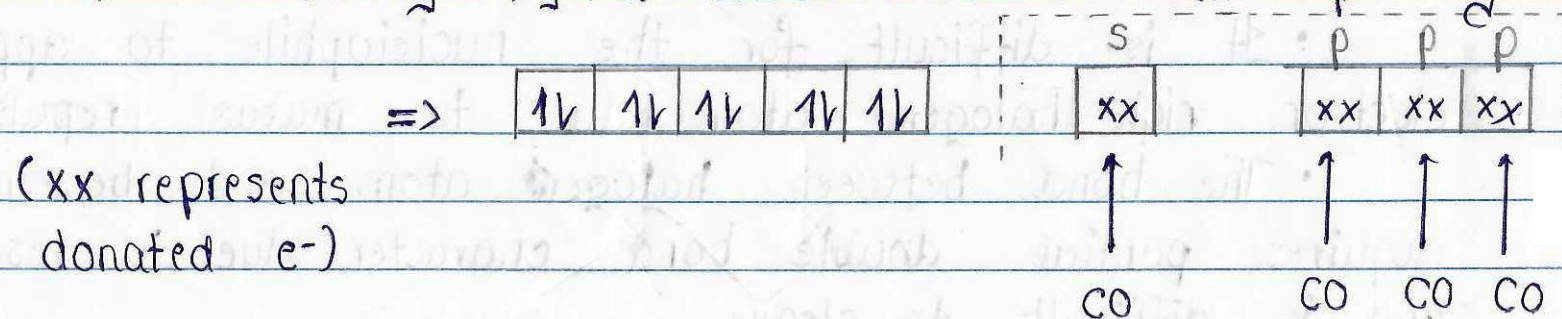 s p p p
=> 1l 1l 1l 1l 1l xx xx xx xx
(xx represents
donated e-)
CO CO CO CO